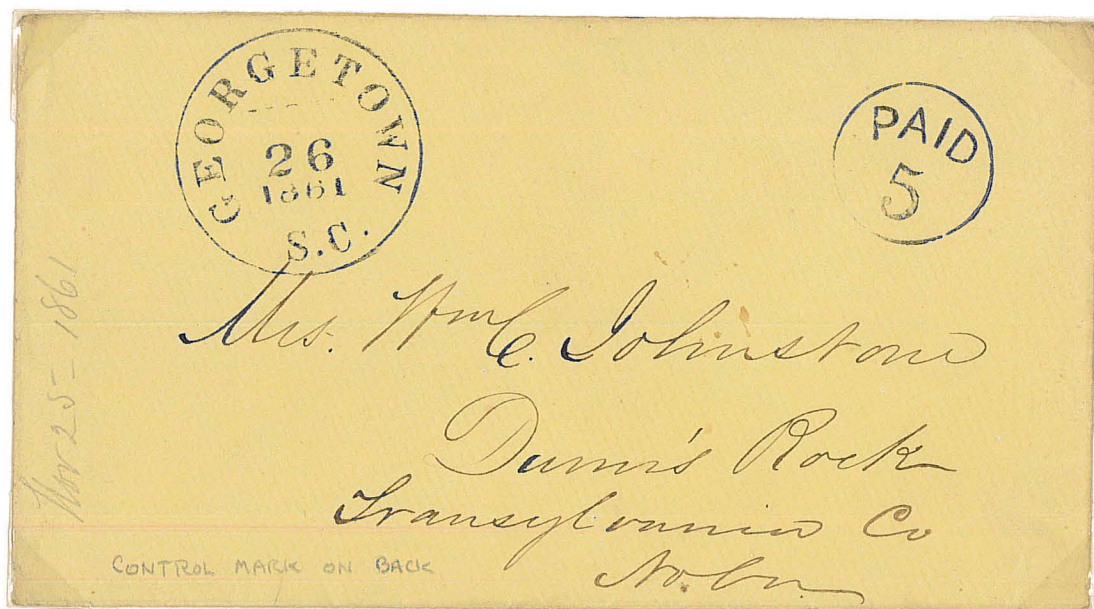 GEORGETOWN
26
1861
S.C.
PAID
5
Mrs. Wm C. Johnstone
Dunn's Rock
Transylvania Co
No. Ca.
Nov 25 - 1861
CONTROL MARK ON BACK